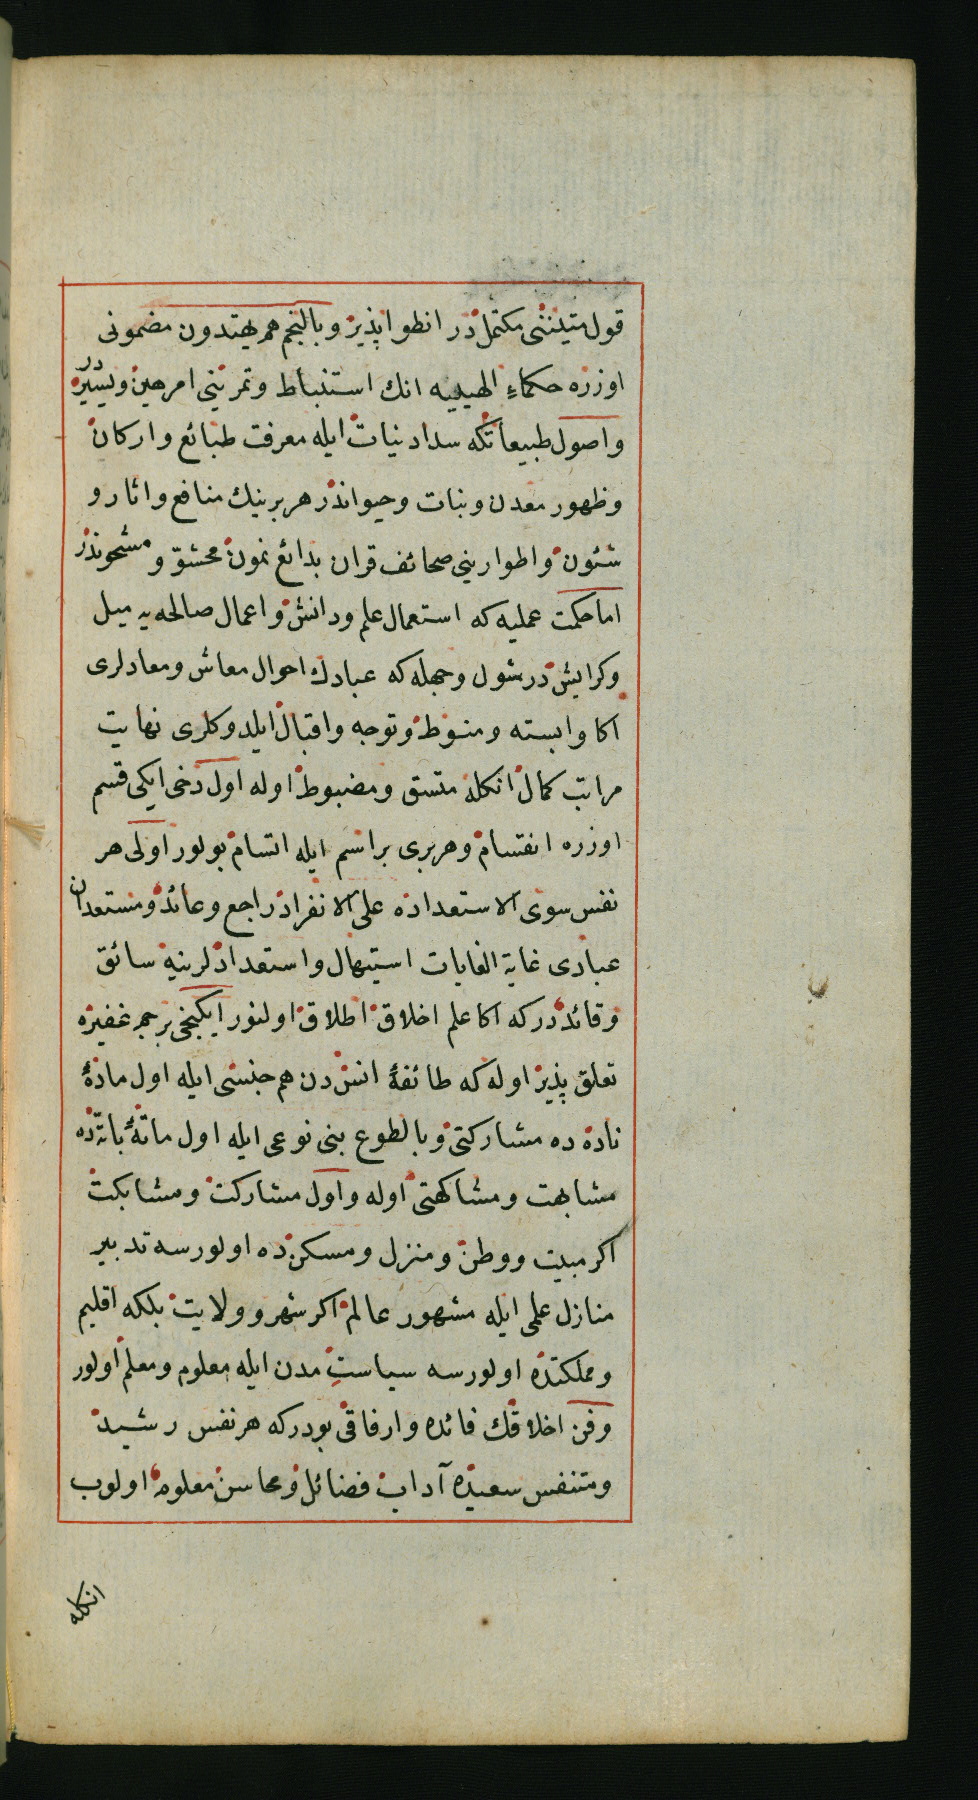 قول متينى مكتمل در انطوا پذير و بالنجم هم يهتدون مضمونى
اوزره حكماء الهيييه انك استنباط و تمرنينى امر هين و يسيردر
و اصول طبيعاتكه سداد نيات ايله معرفت طبائع و اركان
و ظهور معدن و نبات و حيواندر هر برينك منافع و اثار و
شئون و اطوارينى صحائف قران بدائع نمون محشوّ و مشحوندر
اما حكمت عمليه كه استعمال علم و دانش و اعمال صالحه يه ميل
و كرايش در شول وجهله كه عبادك احوال معاش و معادلرى
اكا وابسته و منوط و توجه و اقبال ايلدوكلرى نهايت
مراتب كمال انكله متسق و مضبوط اوله اول دخى ايكى قسم
اوزره انقسام و هر برى بر اسم ايله اتسام بولور اولى هر
نفس سوى الاستعداده على الانفراد راجع و عائد و مستعدان
عبادى غاية الغايات استيهال و استعدادلرينه سائق
و قائددر كه اكا علم اخلاق اطلاق اولنور ايكنجى بر جم غفيره
تعلق پذير اوله كه طائفۀ انس دن هم جنسى ايله اول مادۀ
ناده ده مشاركتى و بالطوع بنى نوعى ايله اول ماتۀ باتّه ده
مشابهت و مشاكهتى اوله و اول مشاركت و مشابكت
اكر مبيت و وطن و منزل و مسكن ده اولورسه تدبير
منازل علمى ايله مشهور عالم اكر شهر و ولايت بلكه اقليم
و مملكتده اولورسه سياست مدن ايله معلوم و معلم اولور
و فن اخلاقك فائده و ارفاقى بودركه هر نفس رشيد
و متنفس سعيده آداب فضائل و محاسن معلوم اولوب
انكله